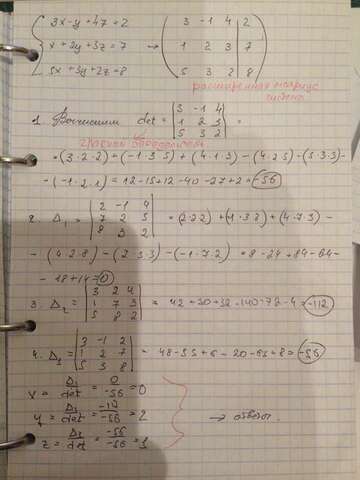 3x-y+4z=2
x+2y+3z=7
5x+3y+2z=8
→
3 -1 4 | 2
1 2 3 | 7
5 3 2 | 8
расширенная матрица
системы
1. Вычислим det =
3 -1 4
1 2 3
5 3 2
=
главный определитель
=(3·2·2)+(-1·3·5)+(4·1·3)-(4·2·5)-(3·3·3)-
-(-1·2·1)=12-15+12-40-27+2=-56
2. Δ₁ =
2 -1 4
7 2 3
8 3 2
=(2·2·2)+(-1·3·8)+(4·7·3)-
-(4·2·8)-(2·3·3)-(-1·7·2)=8-24+84-64-
-18+14=0
3. Δ₂ =
3 2 4
1 7 3
5 8 2
=42+30+32-140-72-4=-112
4. Δ₃ =
3 -1 2
1 2 7
5 3 8
=48-35+6-20-63+8=-56
x = Δ₁/det = 0/-56 = 0
y = Δ₂/det = -112/-56 = 2
→ ответ.
z = Δ₃/det = -56/-56 = 1